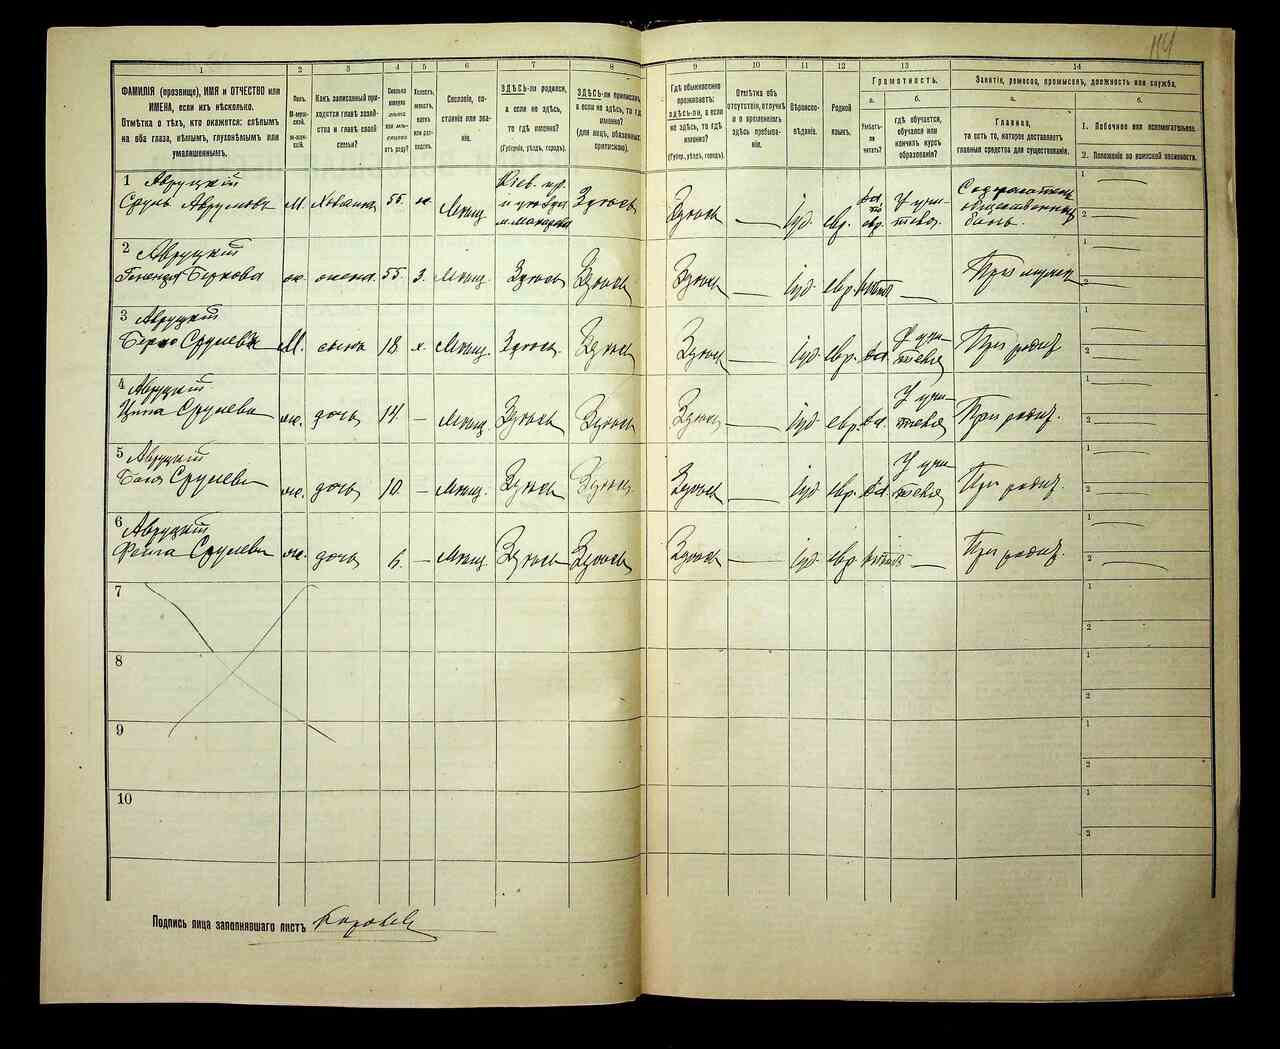 114
1 2 3 4 5 6 7 8 9 10 11 12 13 14
ФАМИЛІЯ (прозвище), ИМЯ и ОТЧЕСТВО или
ИМЕНА, если ихъ нѣсколько.
Отмѣтка о тѣхъ, кто окажется: слѣпымъ
на оба глаза, нѣмымъ, глухонѣмымъ или
умалишеннымъ.
Полъ.
М-мужской.
Ж-женскій.
Какъ записанный при-
ходится главѣ хозяй-
ства и главѣ своей
семьи?
Сколько
минуло
лѣтъ
или мѣ-
сяцевъ
отъ роду?
Холостъ,
женатъ,
вдовъ
или раз-
веденъ.
Сословіе, со-
стояніе или зва-
ніе.
ЗДѢСЬ-ли родился,
а если не здѣсь,
то гдѣ именно?
(Губернія, уѣздъ, городъ).
ЗДѢСЬ-ли приписанъ,
а если не здѣсь, то гдѣ
именно?
(для лицъ, обязанныхъ
припискою).
Гдѣ обыкновенно
проживаетъ:
здѣсь-ли, а если
не здѣсь, то гдѣ
именно?
(Губер., уѣздъ, городъ).
Отмѣтка объ
отсутствіи, отлучкѣ
и о временномъ
здѣсь пребыва-
ніи.
Вѣроиспо-
вѣданіе.
Родной
языкъ.
Грамотность.
а.
Умѣетъ-
ли
читать?
б.
гдѣ обучается,
обучался или
кончилъ курсъ
образованія?
Занятіе, ремесло, промыселъ, должность или служба.
а.
Главное,
то есть то, которое доставляетъ
главныя средства для существованія.
б.
1. Побочное или вспомогательное.
2. Положеніе по воинской повинности.
1 Авруцкій
Сруль Аврумовъ М. Хозяинъ 55. ж. Мѣщ. Кіев. Здѣсь Здѣсь — Іуд. евр. да по евр. У учи-теля. Содержатель общественныхъ бань. 1 — 2 —
2 Авруцкій
Беркова ж. жена. 55 З. Мѣщ. Здѣсь Здѣсь Здѣсь — Іуд. евр. нѣтъ — При мужѣ 1 — 2 —
3 Авруцкій
Берко Срулевъ М. сынъ 18 х. Мѣщ. Здѣсь. Здѣсь Здѣсь — Іуд. евр. да. У учи-теля При родит. 1 — 2 —
4 Авруцкій
Ципа Срулева ж. дочь 14 — Мѣщ. Здѣсь Здѣсь Здѣсь — Іуд. евр. да. У учи-теля При родит. 1 — 2 —
5 Авруцкій
Срулева ж. дочь 10. — Мѣщ. Здѣсь Здѣсь. Здѣсь — Іуд. евр. да. У учи-теля При родит. 1 — 2 —
6 Авруцкій
Фейга Срулева ж. дочь 6. — Мѣщ. Здѣсь Здѣсь Здѣсь — Іуд. евр. нѣтъ — При родит. 1 — 2 —
7 1 2
8 1 2
9 1 2
10 1 2
Подпись лица заполнявшаго листъ